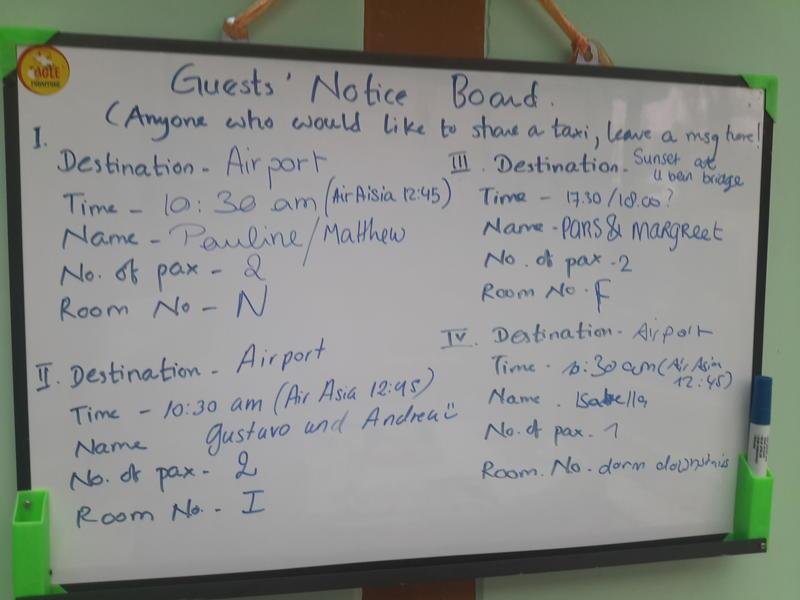 Guests' Notice Board.
(Anyone who would like to share a taxi, leave a msg here!
I.
Destination - Airport
Time - 10:30 am (Air Aisia 12:45)
Name - Pauline/Matthew
No. of pax - 2
Room No - N
II. Destination - Airport
Time - 10:30 am (Air Asia 12:45)
Name gustavo und Andrea
No. of pax - 2
Room No. - I
III. Destination - Sunset at
U ben bridge
Time - 17.30/18.00?
Name - PARIS & MARGREET
No. of pax - 2
Room No - F
IV. Destination - Airport
Time - 10:30am (Air Asia
12:45)
Name. Isabella
No. of pax - 1
Room. No. - dorm downstairs